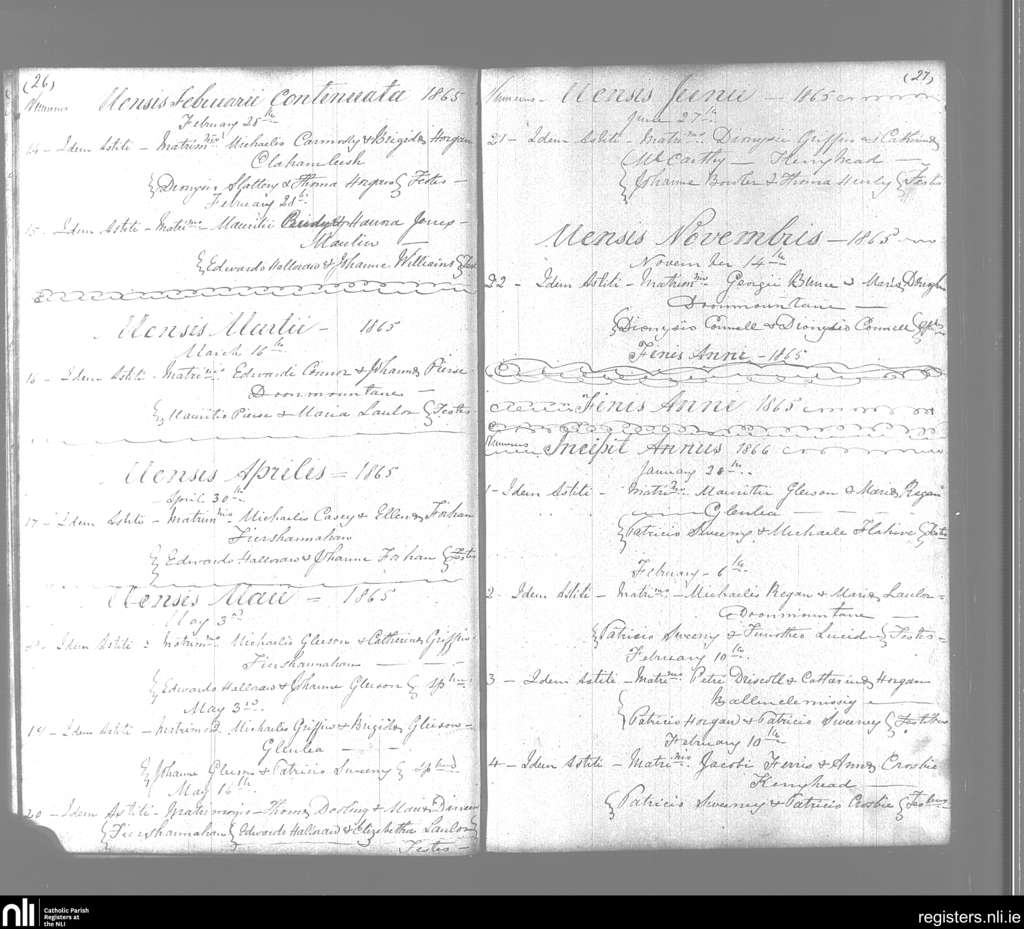 (26)
Numerus Mensis Februarii Continuata 1865
February 25th
14 - Idem Astiti - Matrimnio Michaelis Connolly & Brigidæ Horgan
Clahanleish
Dionysio Slattery & Thoma Horgan Testes -
February 28th
15 - Idem Astiti - Matrimo Mauritii & Hanna Jones -
Maulin
Edwardo Halloran & Johanne Williams
Mensis Martii - 1865
March 16th
16 - Idem Astiti - Matrimo Edwardi Connor & Johannæ Pierse
Doonmountane -
Mauritio Pierse & Maria Lawlor Testes -
Mensis Aprilis = 1865
April 30th
17 - Idem Astiti - Matrimnio Michaelis Casey & Ellenæ Fahan
Fiershannahan
Edwardo Halloran & Johanne Fahan Testes
Mensis Maii = 1865
May 3rd
Idem Astiti : Matrimo Michaelis Gleeson & Catherinæ Griffin
Fiershannahan
Edwardo Halloran & Johanne Gleeson
May 3rd
19 - Idem Astiti - Michaelis Griffin & Brigidæ Gleeson -
Glenlea
Johanne & Patricio Sweeny
May 16th
20 - Idem Astiti - Matrimonio - Thomæ Dowling & Mariæ
Fiershannahan Edwardo Halloran & Elizabetha Lawlor
Testes -
(27)
Numerus - Mensis Junii - 1865
June 27th
21 - Idem Astiti - Matrimo Dionysii Griffin & Catherinæ
McCarthy - Kerryhead -
Johanne Bowler & Thoma Henly Testes
Mensis Novembris - 1865
November 14th
22 - Idem Astiti - Matrimnio Georgii Bunce & Mariæ
Doonmountane -
Dionysio Connell & Dionysio Connell
Finis Anni - 1865
Finis Anni 1865
Numerus Incipit Annus 1866
January 20th
1 - Idem Astiti - Matrimo Mauritii Gleeson & Mariæ Regan
Glenlea
Patricio Sweeny & Michaele Flahive Testes
February - 6th
2 - Idem Astiti - Matrimo - Michaelis Regan & Mariæ Lawlor -
Doonmountane
Patricio Sweeny & Timotheo Lucid Testes -
February 10th
3 - Idem Astiti - Matrimo Petri Driscoll & Catharinæ Horgan
Ballinclemissig
Patricio Horgan & Patricio Sweeney Testibus
February 10th
4 - Idem Astiti - Matrimnio Jacobi Ferris & Annæ Crosbie
Kerryhead
Patricio Sweeney & Patricio Crosbie Testibus
nli Catholic Parish
Registers at
the NLI
registers.nli.ie